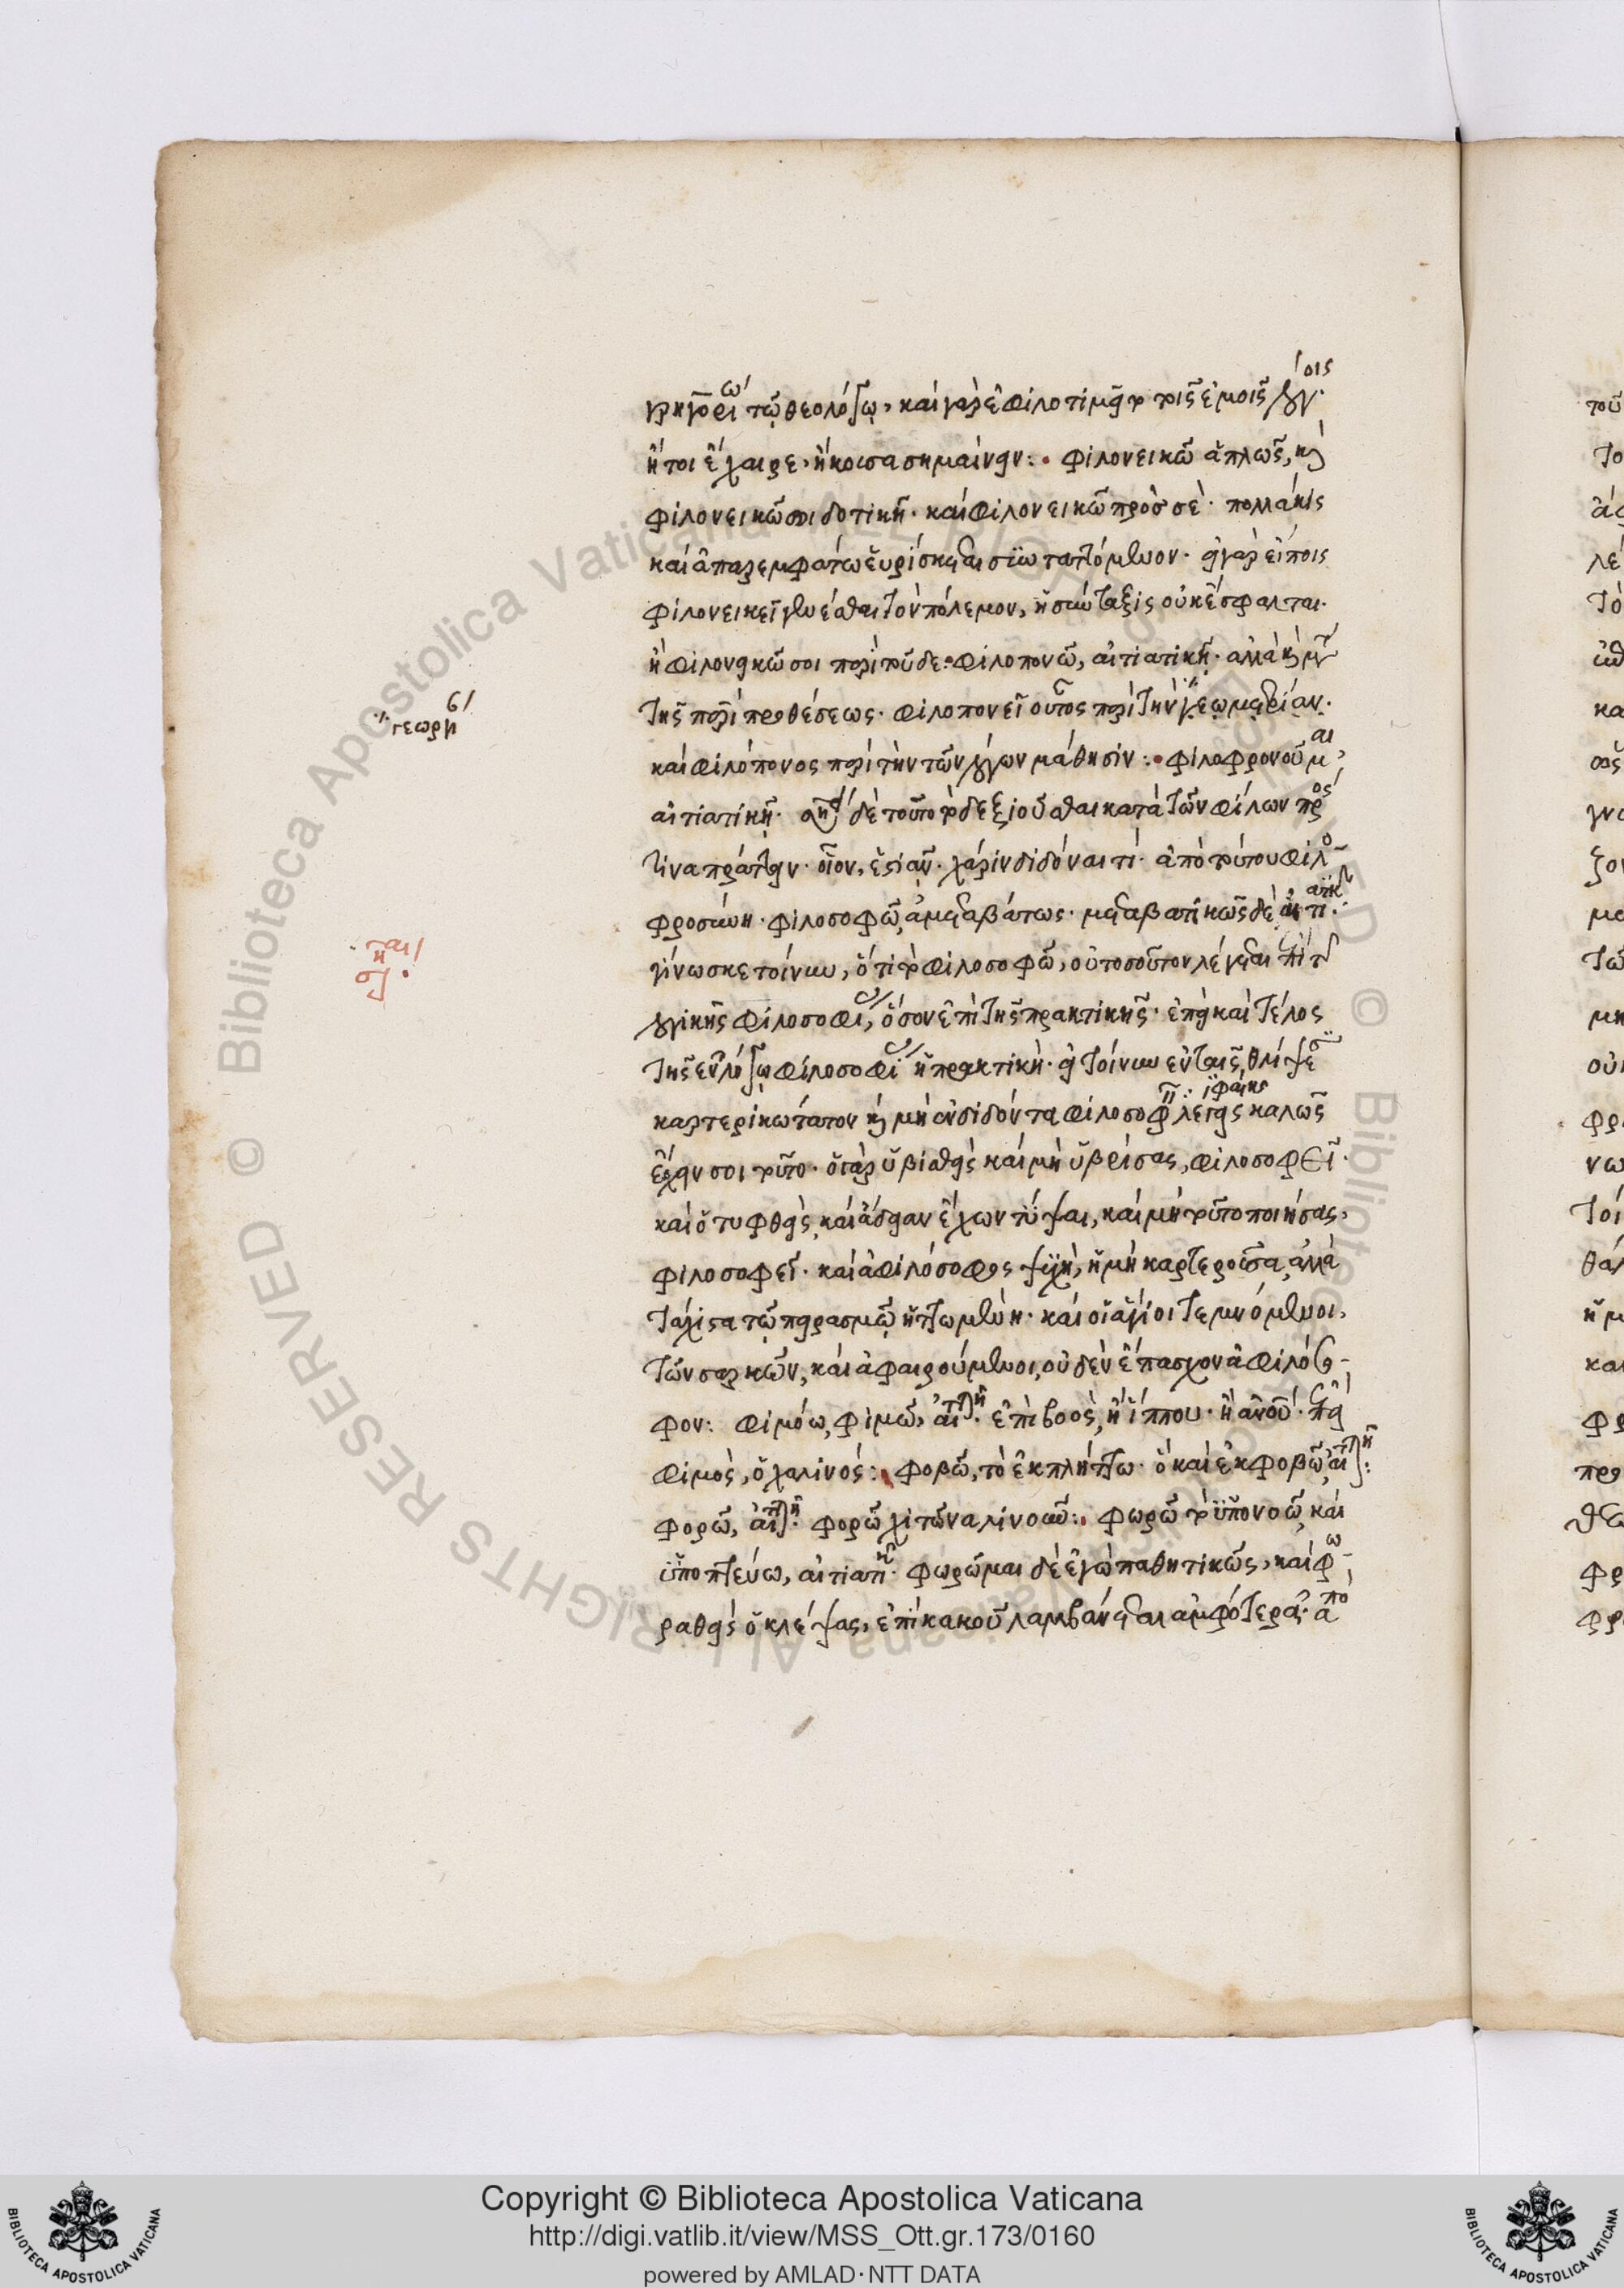 Γρηγορίω τῷ θεολόγῳ, καὶ γὰρ ἐφιλοτιμεῖτο τοῖς ἐμοῖς λόγοις
ἤτοι ἔχαιρε, ἢ κοισα σημαίνειν: φιλονεικῶ ἁπλῶς, καὶ
φιλονεικῶ σοι δοτικῇ. καὶ φιλονεικῶ πρὸς σέ. πολλάκις
καὶ ἀπαρεμφάτω εὑρίσκεται συνταττόμενον. εἰ γὰρ εἴποις
φιλονεικεῖ γενέσθαι τὸν πόλεμον, ἡ σύνταξις οὐκ ἔσφαλται.
ἢ φιλονεικῶ σοι περὶ τοῦδε. φιλοπονῶ, αἰτιατικῇ. ἀλλὰ καὶ μετὰ
τῆς περὶ προθέσεως. φιλοπονεῖ οὗτος περὶ τὴν γεωμετρίαν.
καὶ φιλόπονος περὶ τὴν τῶν λόγων μάθησιν: φιλοφρονοῦμαι,
αἰτιατικῇ. δὲ τοῦτο τὸ δεξιοῦσθαι κατὰ τῶν φίλων πρός
τινα πράττειν. οἷον, ἑστιᾶν. χάριν διδόναι τι. ἀπὸ τούτου φιλο
φροσύνη. φιλοσοφῶ, ἀμεταβάτως. μεταβατικῶς δὲ, αἰτιατικῇ
γίνωσκε τοίνυν, ὅτι τὸ φιλοσοφῶ, οὐ τοσοῦτον λέγεται ἐπὶ τῆς
λογικῆς φιλοσοφίας, ὅσον ἐπὶ τῆς πρακτικῆς. ἐπεὶ καὶ τέλος
τῆς ἐν λόγῳ φιλοσοφίας ἡ πρακτική. εἰ τοίνυν ἐν ταῖς θλίψεσι
καρτερικώτατον καὶ μὴ ἐνδιδόντα φιλοσοφ λε καλῶς
ἔχειν σοι τοῦτο. ὁ γὰρ ὑβρισθεὶς καὶ μὴ ὑβρίσας, φιλοσοφεῖ.
καὶ ὁ τυφθεὶς, καὶ ἄδειαν ἔχων τύψαι, καὶ μὴ τοῦτο ποιήσας,
φιλοσοφεῖ. καὶ ἀφιλόσοφος ψυχὴ, ἡ μὴ καρτεροῦσα, ἀλλὰ
τάχιστα τῷ πειρασμῷ ἡττωμένη. καὶ οἱ ἅγιοι τεμνόμενοι,
τῶν σαρκῶν, καὶ ἀφαιρούμενοι, οὐδὲν ἔπασχον ἀφιλόσο-
φον: φιμόω, φιμῶ, αἰτιατικῇ. ἐπὶ βοὸς, ἢ ἵππου. ἢ ἀνοῦ. ἐπεὶ
φιμὸς, ὁ χαλινός: φοβῶ, τὸ ἐκπλήττω. ὃ καὶ ἐκφοβῶ, αἰτιατικῇ:
φορῶ, αἰτιατικῇ. φορῶ χιτῶνα λινοῦν: φωρῶ τὸ ὑπονοῶ, καὶ
ὑποπτεύω, αἰτιατικῇ. φωρῶμαι δὲ ἐγὼ παθητικῶς, καὶ φω-
ραθεὶς ὁ κλέψας, ἐπὶ κακοῦ λαμβάνεται ἀμφότερα. ἀπὸ
Copyright © Biblioteca Apostolica Vaticana
http://digi.vatlib.it/view/MSS_Ott.gr.173/0160
powered by AMLAD·NTT DATA
BIBLIOTECA APOSTOLICA VATICANA
BIBLIOTECA APOSTOLICA VATICANA